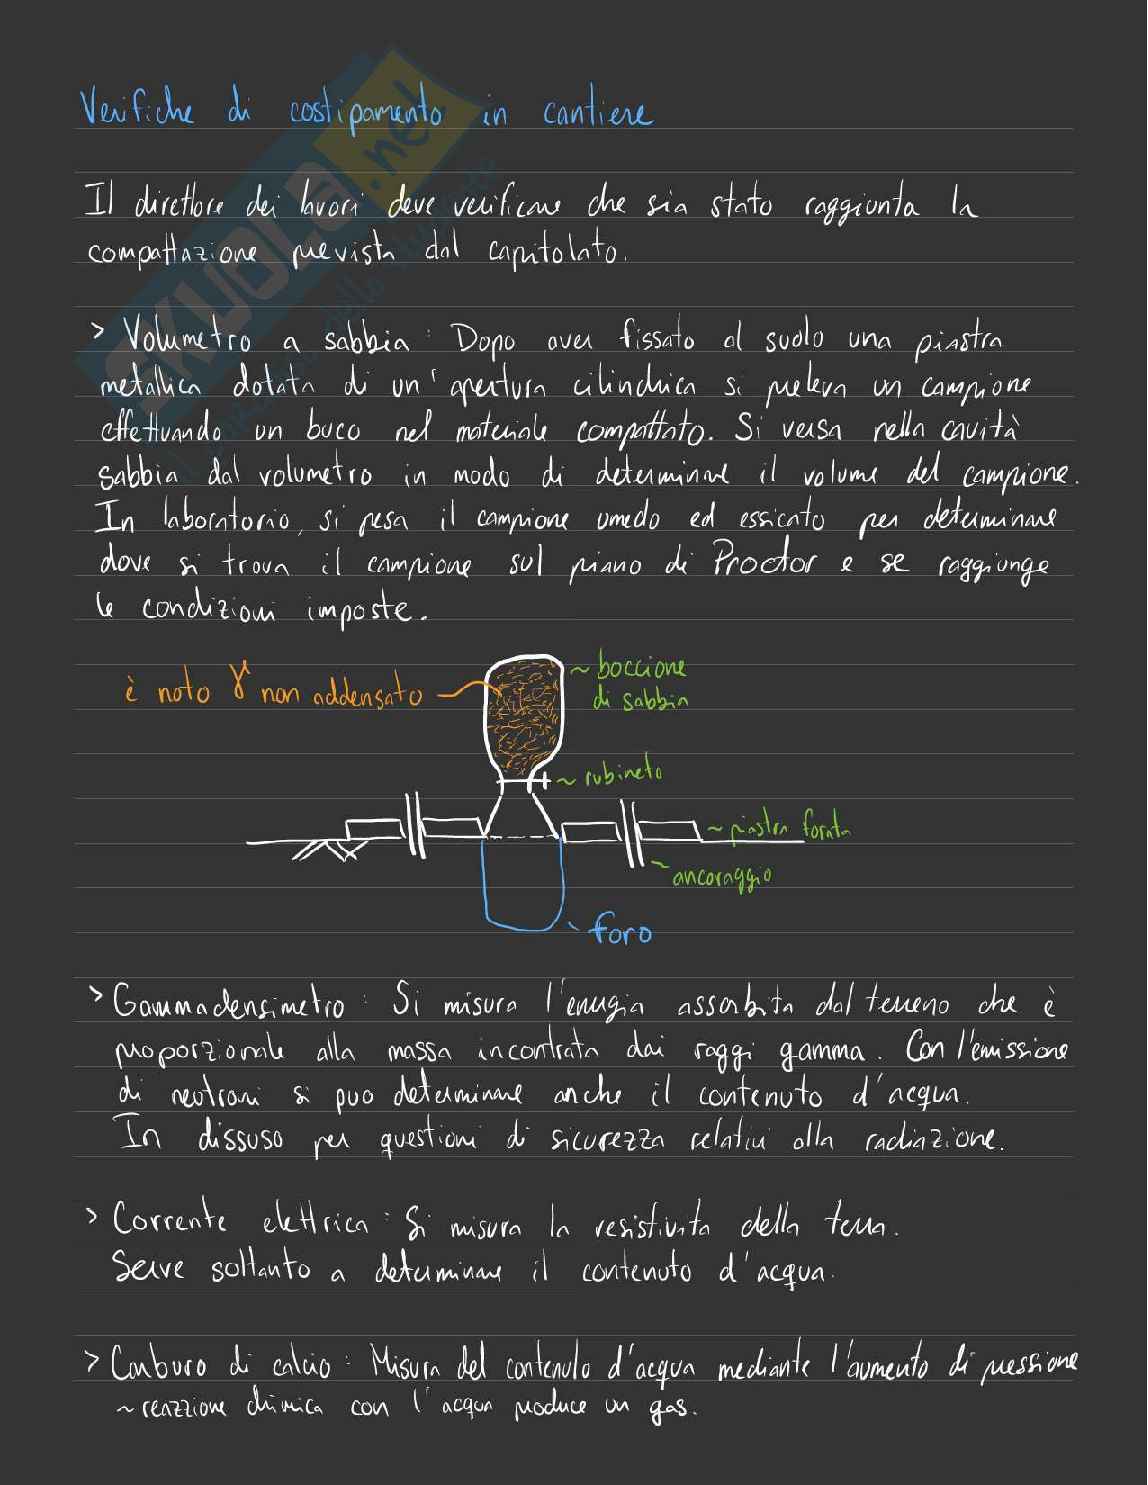 Verifiche di costipamento in cantiere
Il direttore dei lavori deve verificare che sia stato raggiunta la
compattazione prevista dal capitolato.
> Volumetro a sabbia : Dopo aver fissato al suolo una piastra
metallica dotata di un'apertura cilindrica si preleva un campione
effettuando un buco nel materiale compattato. Si versa nella cavità
sabbia dal volumetro in modo di determinare il volume del campione.
In laboratorio, si pesa il campione umedo ed essicato per determinare
dove si trova il campione sul piano di Proctor e se raggiunge
le condizioni imposte.
è noto γ non addensato
~ boccione
di sabbia
~ rubineto
~ piastra forata
~ ancoraggio
foro
> Gammadensimetro : Si misura l'energia assorbita dal terreno che è
proporzionale alla massa incontrata dai raggi gamma. Con l'emissione
di neutroni si puo determinare anche il contenuto d'acqua.
In dissuso per questioni di sicurezza relativi alla radiazione.
> Corrente elettrica : Si misura la resistivita della terra.
Serve soltanto a determinare il contenuto d'acqua.
> Carburo di calcio : Misura del contenuto d'acqua mediante l'aumento di pressione
~ reazzione chimica con l'acqua produce un gas.
SKUOLA.net